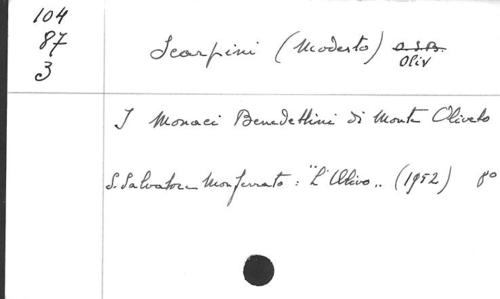 104
87
3
Scarpini (Modesto) O.S.B.
Oliv
I Monaci Benedettini di Monte Oliveto
S. Salvatore Monferrato: "L'Ulivo" (1952) 8º